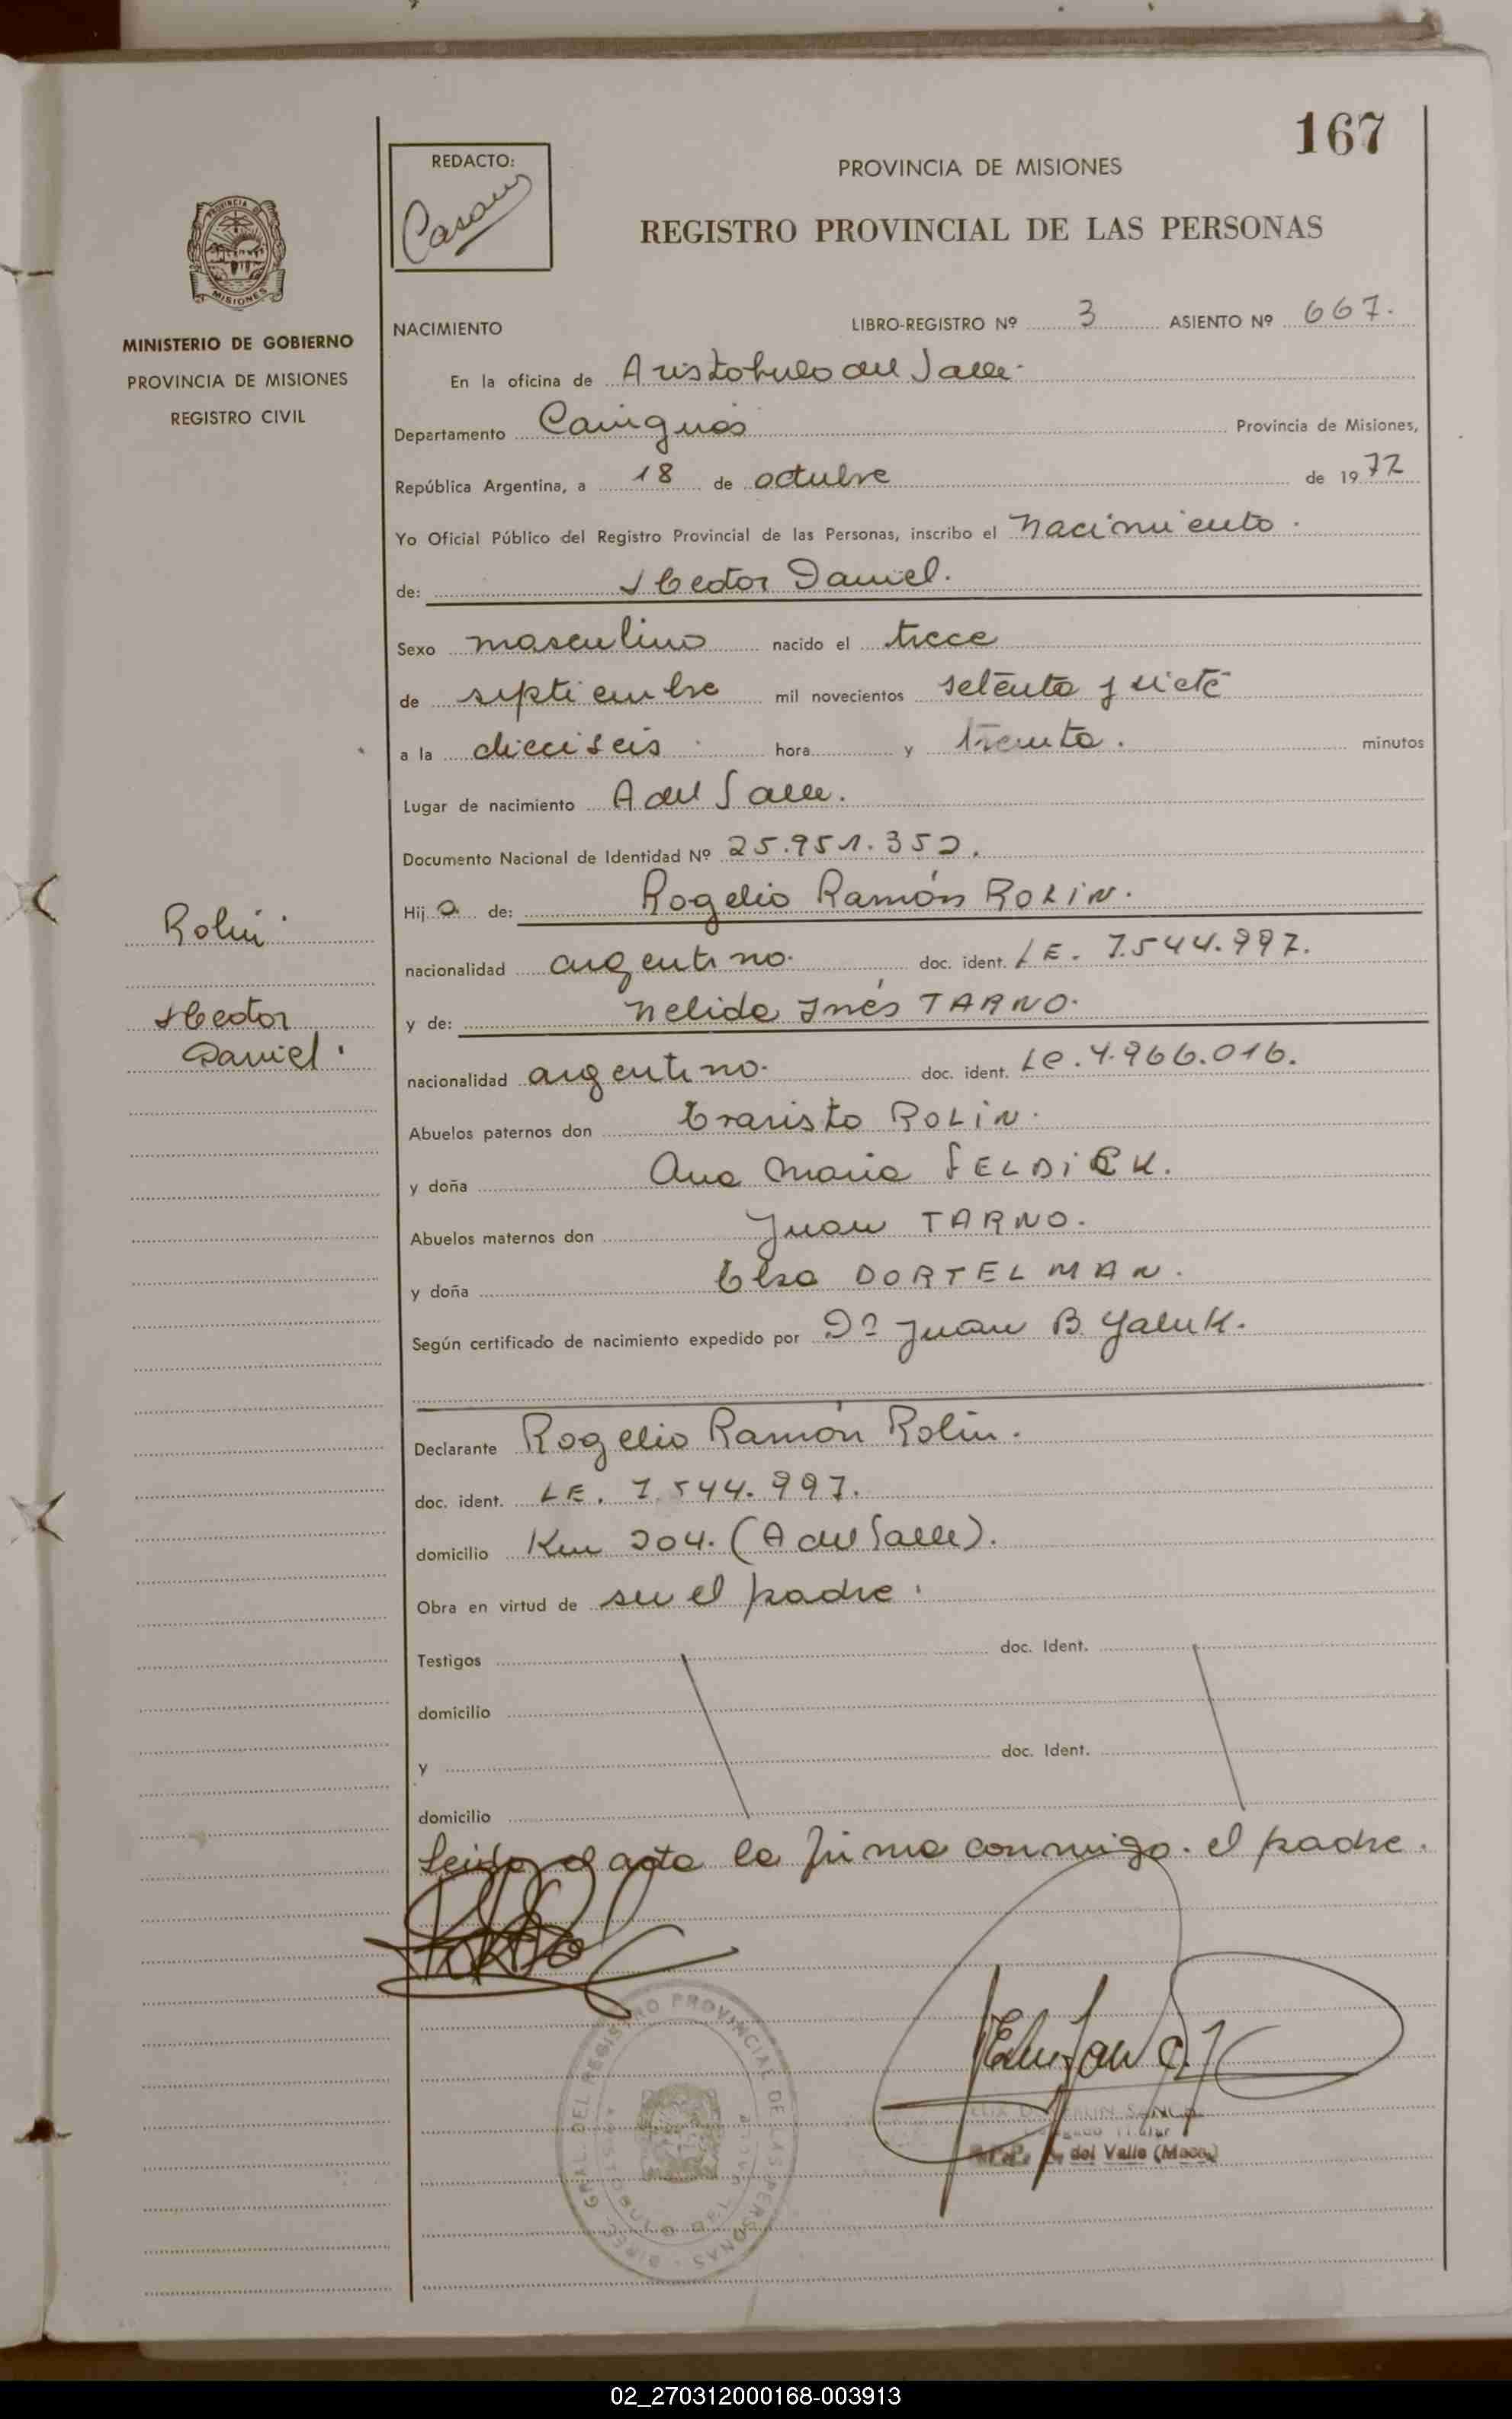 167
REDACTO:
PROVINCIA DE MISIONES
REGISTRO PROVINCIAL DE LAS PERSONAS
PROVINCIA DE
MISIONES
MINISTERIO DE GOBIERNO
PROVINCIA DE MISIONES
REGISTRO CIVIL
NACIMIENTO LIBRO-REGISTRO Nº 3 ASIENTO Nº 667.
En la oficina de Aristobulo del Valle.
Departamento Cainguás Provincia de Misiones,
República Argentina, a 18 de octubre de 1972
Yo Oficial Público del Registro Provincial de las Personas, inscribo el nacimiento.
de: Hector Daniel.
Sexo masculino nacido el trece
de septiembre mil novecientos setenta y siete
a la dieciseis hora y treinta. minutos
Lugar de nacimiento A del Valle.
Documento Nacional de Identidad Nº 25.951.352.
Hij o de: Rogelio Ramón ROLIN.
nacionalidad argentino. doc. ident. LE. 7.544.997.
y de: Nelida Inés TARNO.
nacionalidad argentino. doc. ident. LC. 4.966.016.
Abuelos paternos don Evaristo ROLIN.
y doña Ana Maria
Abuelos maternos don Juan TARNO.
y doña Elsa DORTELMAN.
Según certificado de nacimiento expedido por Dr Juan B. Yaluk.
Rolin.
Hector
Daniel.
Declarante Rogelio Ramón Rolin.
doc. ident. LE. 7.544.997.
domicilio Km 204. (A del Valle).
Obra en virtud de ser el padre.
Testigos doc. Ident.
domicilio
y doc. Ident.
domicilio
Leida el acta la firma conmigo. el padre.
DEL REGISTRO PROVINCIAL DE LAS PERSONAS
del Valle
02_270312000168-003913